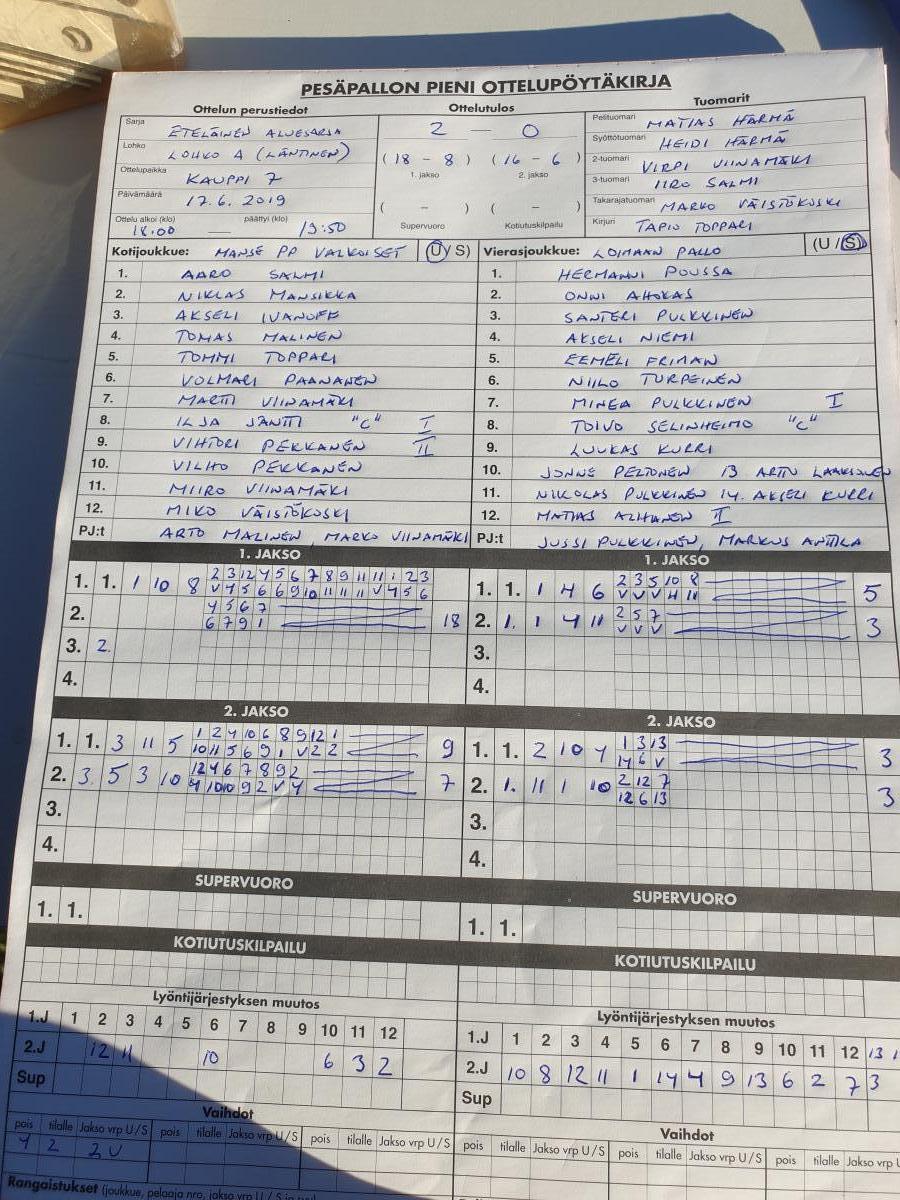 PESÄPALLON PIENI OTTELUPÖYTÄKIRJA
Ottelun perustiedot
Sarja ETELÄINEN ALUESARJA
Lohko LOHKO A (LÄNTINEN)
Ottelupaikka KAUPPI 7
Päivämäärä 17.6.2019
Ottelu alkoi (klo) päättyi (klo)
18:00 — 19:50
Ottelutulos
2 - 0
(18 - 8) (16 - 6)
1. jakso 2. jakso
( - ) ( - )
Supervuoro Kotiutuskilpailu
Tuomarit
Pelituomari MATIAS HÄRMÄ
Syöttötuomari HEIDI HÄRMÄ
2-tuomari VIRPI VIINAMÄKI
3-tuomari IIRO SALMI
Takarajatuomari MARKO VÄISTÖKOSKI
Kirjuri TAPIO TOPPARI
Kotijoukkue: MANSE PP VALKOISET (U/S)
1. AARO SALMI
2. NIKLAS MANSIKKA
3. AKSELI IVANOFF
4. TOMAS MALINEN
5. TOMMI TOPPARI
6. VOLMARI PAANANEN
7. MARTTI VIINAMÄKI
8. ILJA JÄNTTI "C" I
9. VIHTORI PEKKANEN II
10. VILHO PEKKANEN
11. MIIRO VIINAMÄKI
12. MIKO VÄISTÖKOSKI
PJ:t ARTO MALINEN, MARKO VIINAMÄKI
Vierasjoukkue: LOIMAAN PALLO (U/S)
1. HERMANNI POUSSA
2. ONNI AHOKAS
3. SANTERI PULKKINEN
4. AKSELI NIEMI
5. EEMELI FRIMAN
6. NIILO TURPEINEN
7. MINEA PULKKINEN I
8. TOIVO SELINHEIMO "C"
9. LUUKAS KURRI
10. JONNE PELTONEN 13 ARTTU LAAKSONEN
11. NIKOLAS PULKKINEN 14. AKSELI KURRI
12. MATIAS ALHANEN II
PJ:t JUSSI PULKKINEN, MARKUS ANTTILA
1. JAKSO
1. 1. 1 10 8 2 3 12 4 5 6 7 8 9 11 11 1 2 3
V 4 5 6 6 9 10 11 11 11 V 4 5 6
2. 4 5 6 7
6 7 9 1 18
3. 2.
4.
1. JAKSO
1. 1. 1 4 6 2 3 5 10 8
V V V 4 11 5
2. 1. 1 4 11 2 5 7
V V V 3
3.
4.
2. JAKSO
1. 1. 3 11 5 1 2 4 10 6 8 9 12 1
10 11 5 6 9 1 V 2 2 9
2. 3. 5 3 10 12 4 6 7 8 9 2
4 10 10 9 2 V 4 7
3.
4.
2. JAKSO
1. 1. 2 10 4 1 3 13
14 6 V 3
2. 1. 11 1 10 2 12 7
12 6 13 3
3.
4.
SUPERVUORO
1. 1.
SUPERVUORO
1. 1.
KOTIUTUSKILPAILU
KOTIUTUSKILPAILU
Lyöntijärjestyksen muutos
1.J 1 2 3 4 5 6 7 8 9 10 11 12
2.J 12 11 10 6 3 2
Sup
Lyöntijärjestyksen muutos
1.J 1 2 3 4 5 6 7 8 9 10 11 12 13
2.J 10 8 12 11 1 14 4 9 13 6 2 7 3
Sup
Vaihdot
pois tilalle Jakso vrp U/S pois tilalle Jakso vrp U/S pois tilalle Jakso vrp U/S
4 2 2U
Vaihdot
pois tilalle Jakso vrp U/S pois tilalle Jakso vrp U/S pois tilalle Jakso vrp U
Rangaistukset (joukkue, pelaaja nro, jakso vrp U/S